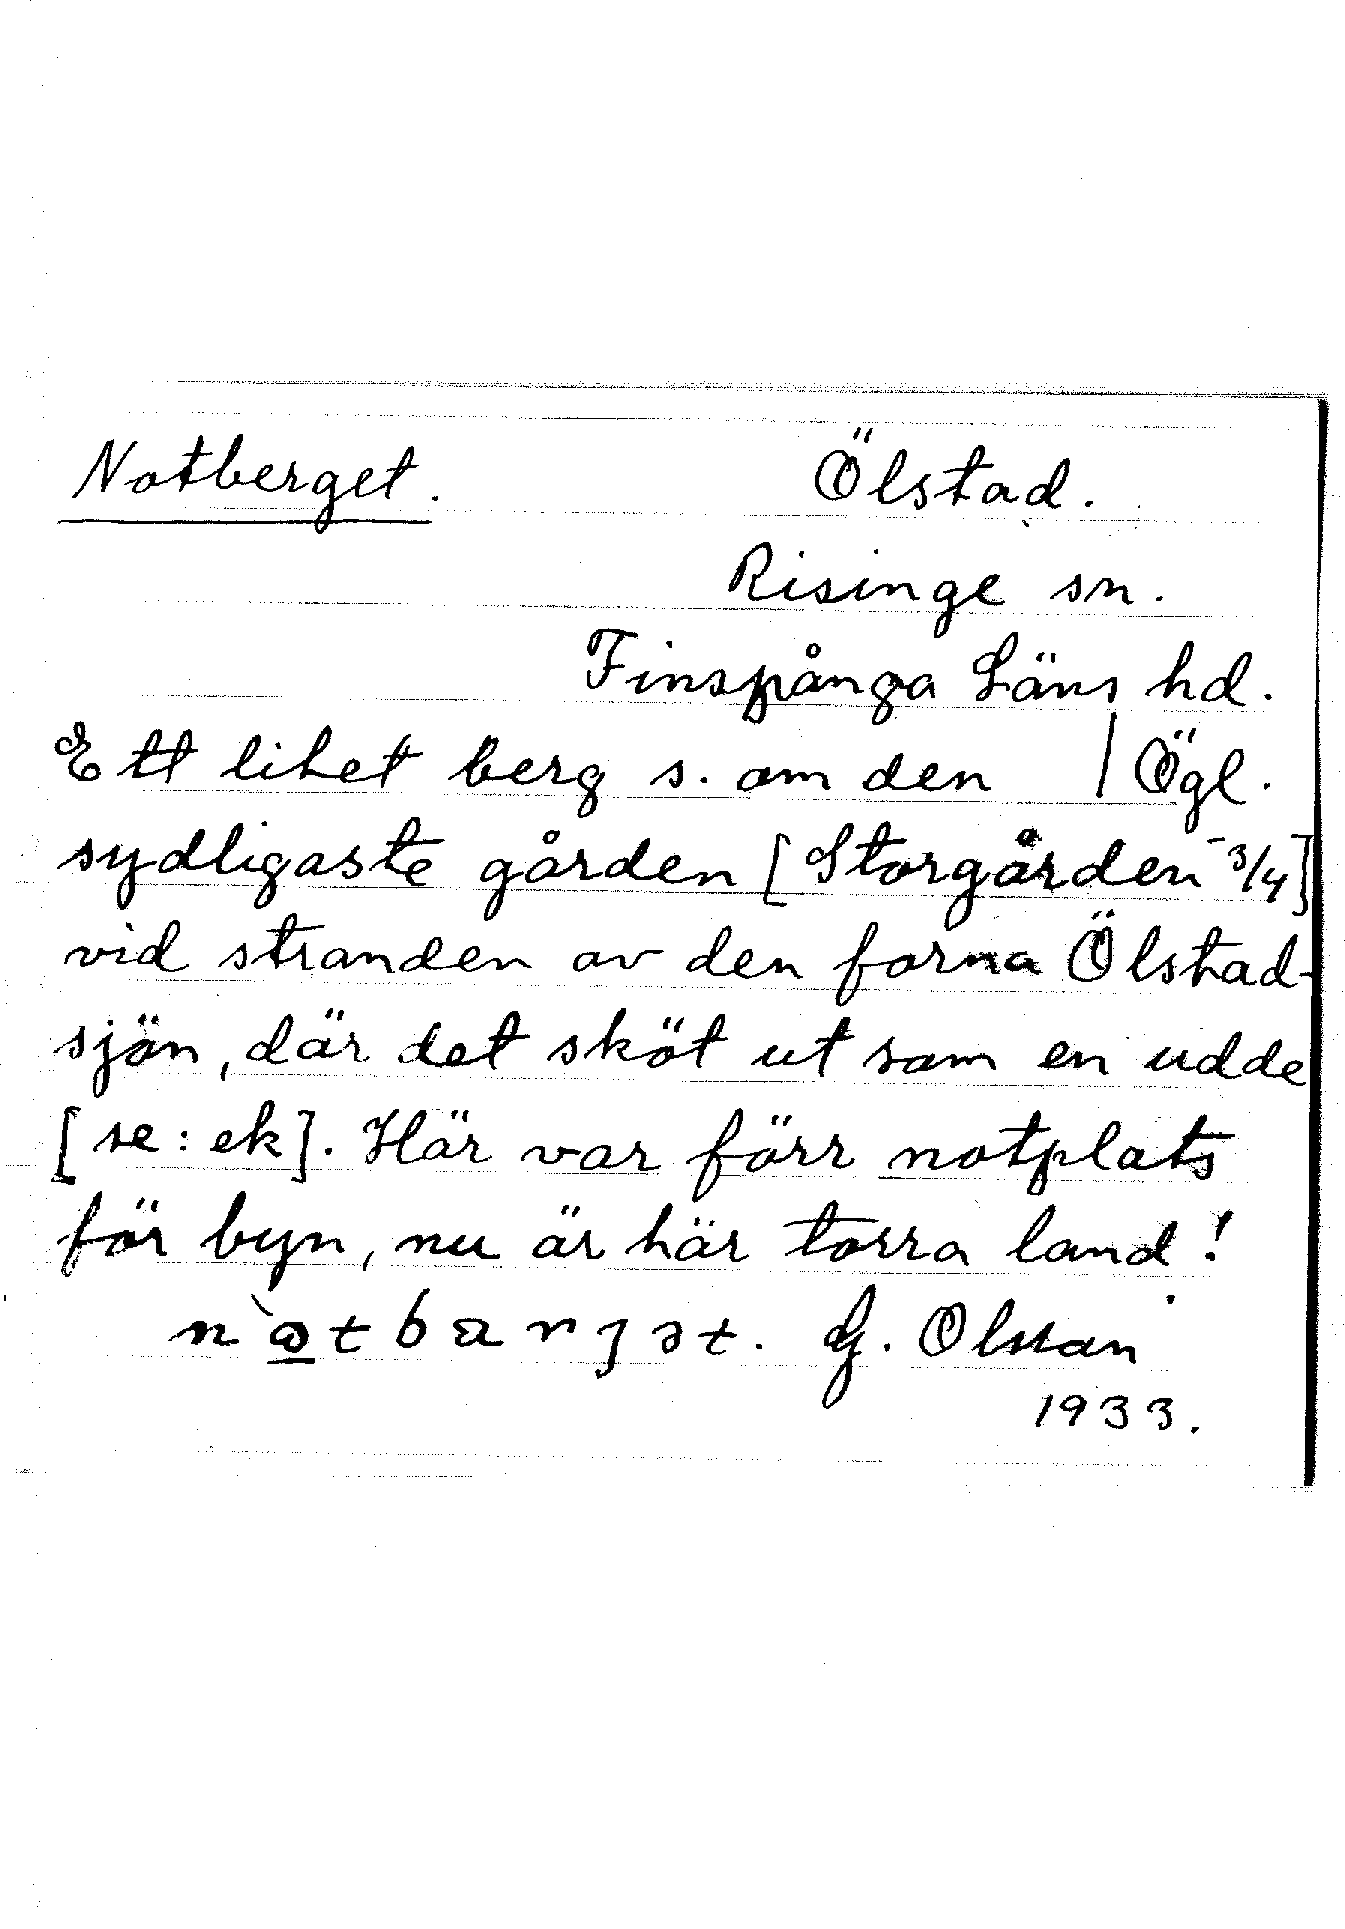 Notberget. Ölstad.
Risinge sn.
Finspånga Läns hd.
Ett litet berg s. om den | Ögl.
sydligaste gården [Storgården -3/4]
vid stranden av den forna Ölstad-
sjön, där det sköt ut som en udde
[se: ek]. Här var förr notplats
för byn, nu är här torra land!
G. Olsson
1933.